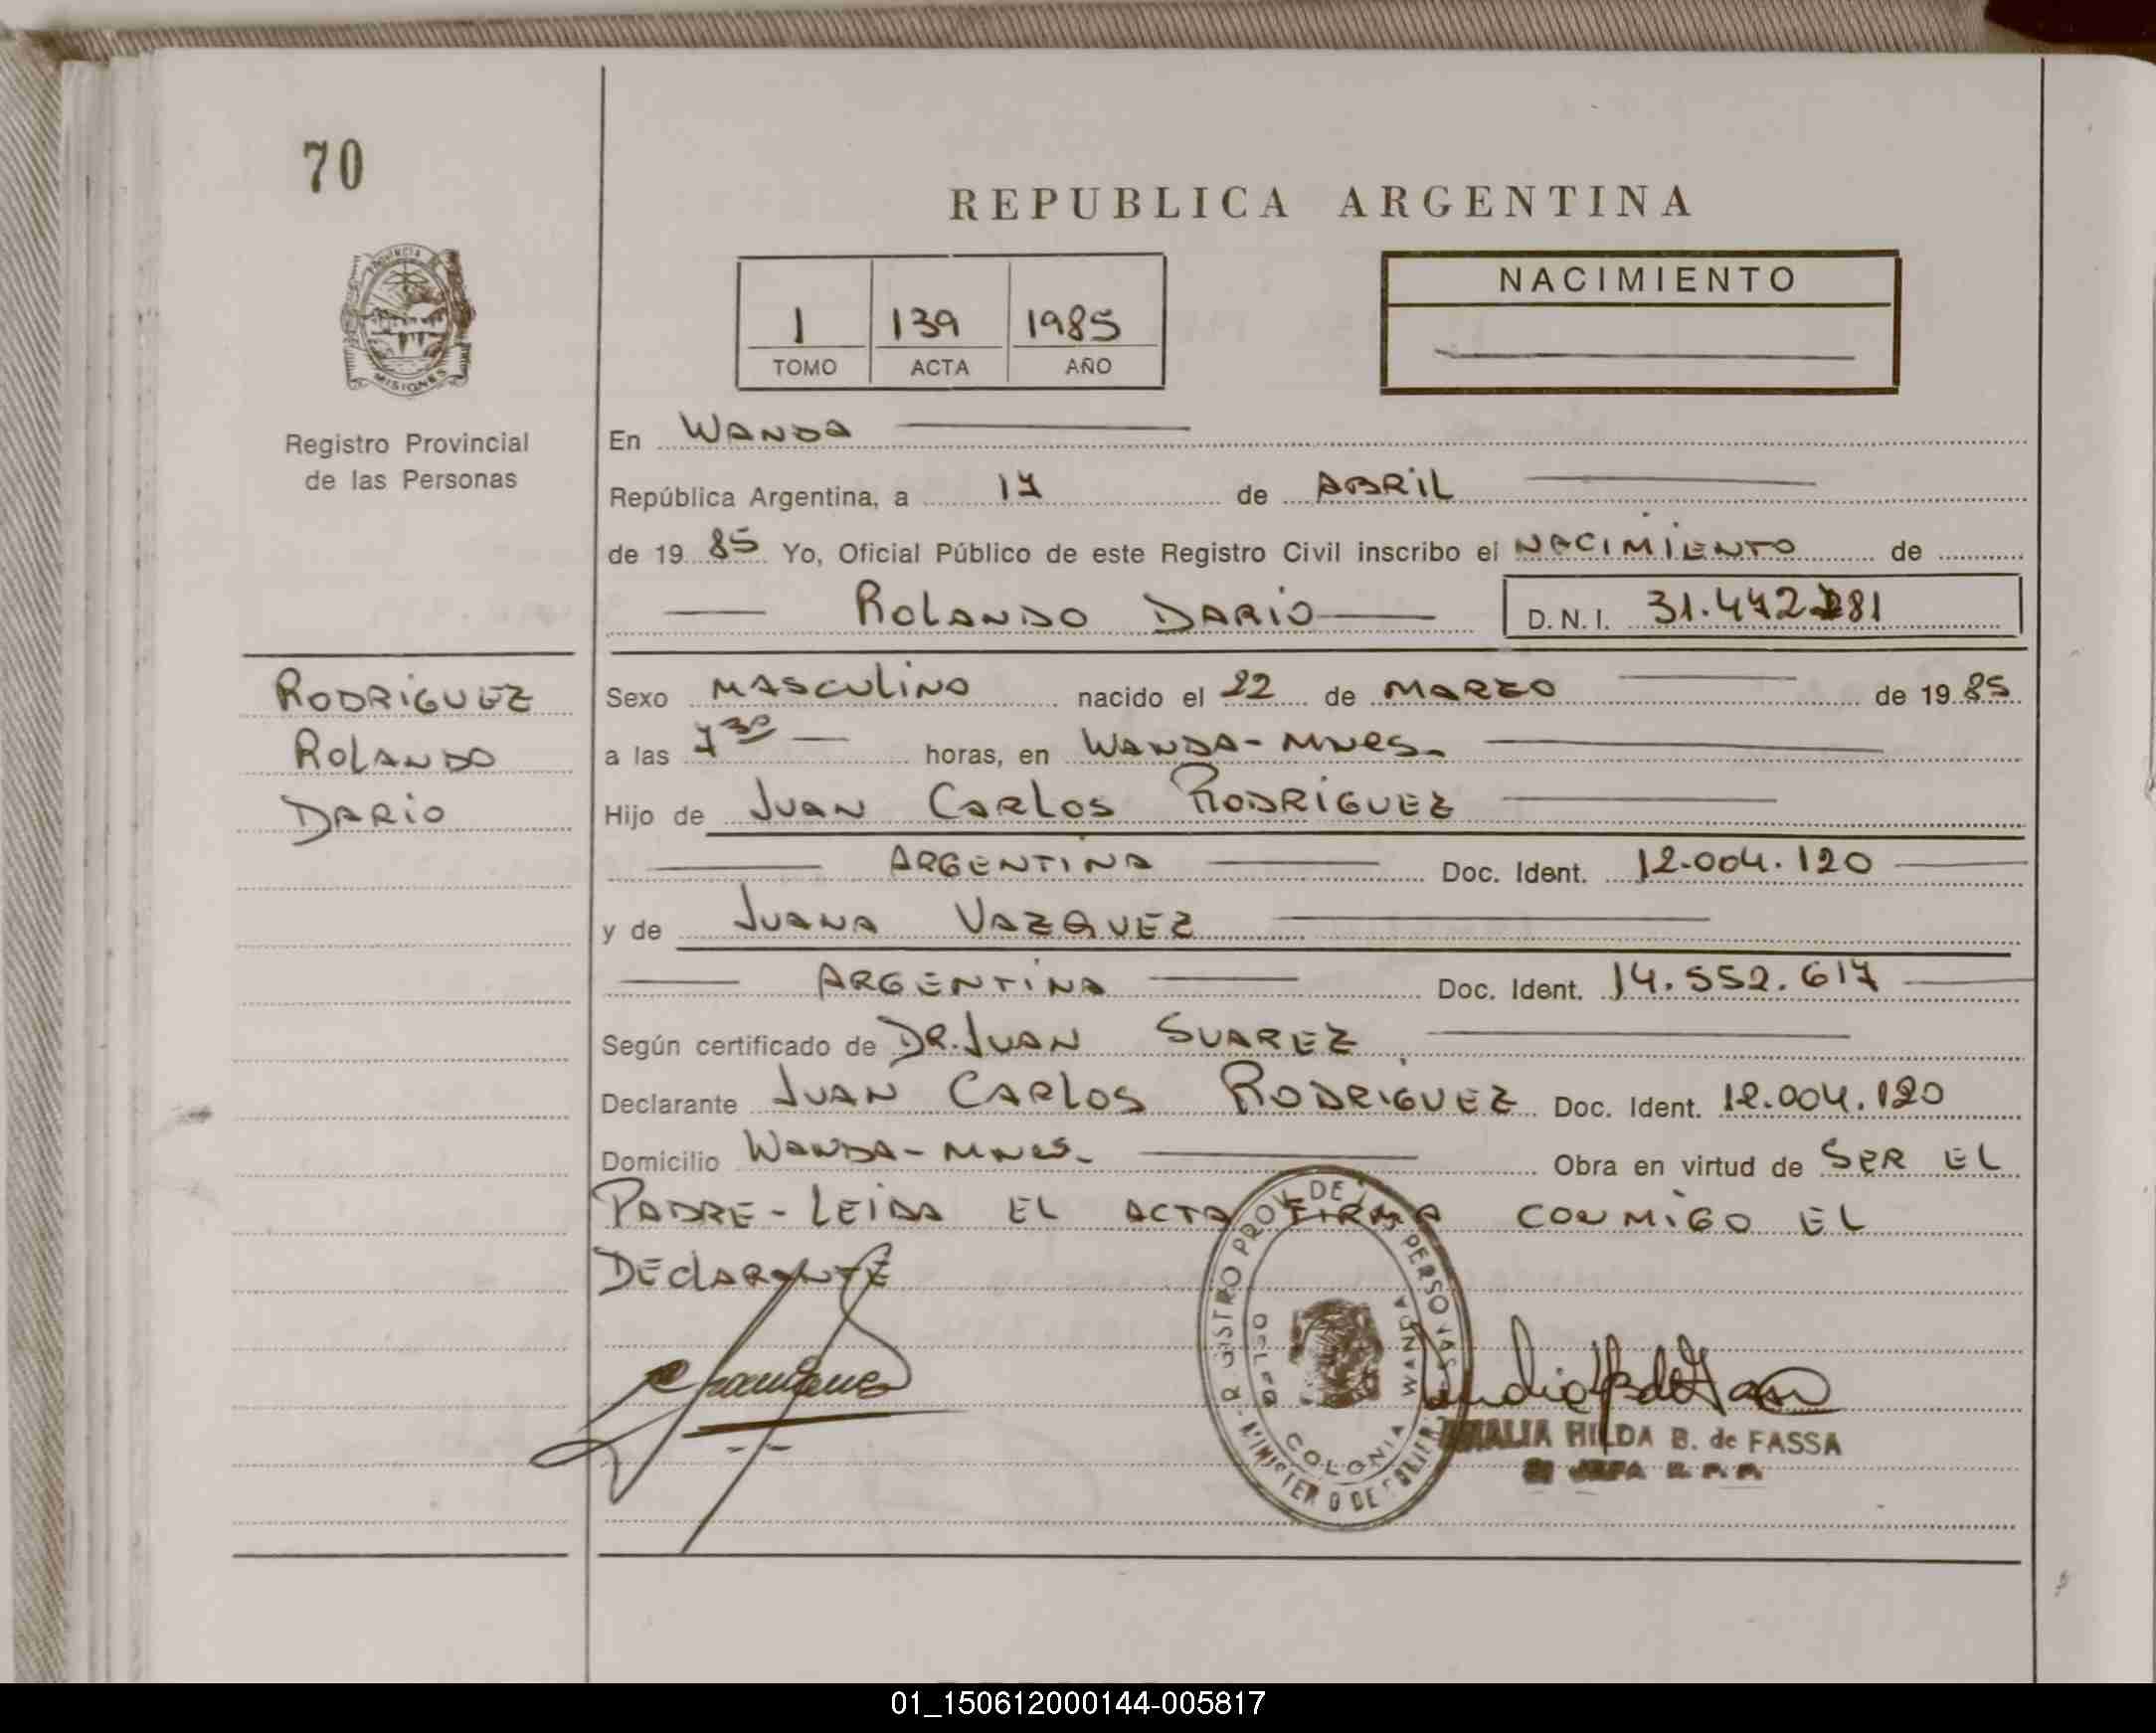 70
REPUBLICA ARGENTINA
PROVINCIA DE MISIONES
Registro Provincial
de las Personas
NACIMIENTO
1 139 1985
TOMO ACTA AÑO
En WANDA
República Argentina, a 17 de ABRIL
de 19 85 Yo, Oficial Público de este Registro Civil inscribo el NACIMIENTO de
ROLANDO DARIO D.N.I.
RODRIGUEZ
ROLANDO
DARIO
Sexo MASCULINO nacido el 22 de MARZO de 19 85
a las 7 30 horas, en WANDA - MNES.
Hijo de JUAN CARLOS RODRIGUEZ
ARGENTINA Doc. Ident. 12.004.120
y de JUANA VAZQUEZ
ARGENTINA Doc. Ident. 14.552.617
Según certificado de DR. JUAN SUAREZ
Declarante JUAN CARLOS RODRIGUEZ Doc. Ident. 12.004.120
Domicilio WANDA - MNES. Obra en virtud de SER EL
PADRE - LEIDA EL ACTA FIRMA CONMIGO EL
DECLARANTE
REGISTRO PROV. DE LAS PERSONAS
COLONIA WANDA
HILDA B. de FASSA
01_150612000144-005817